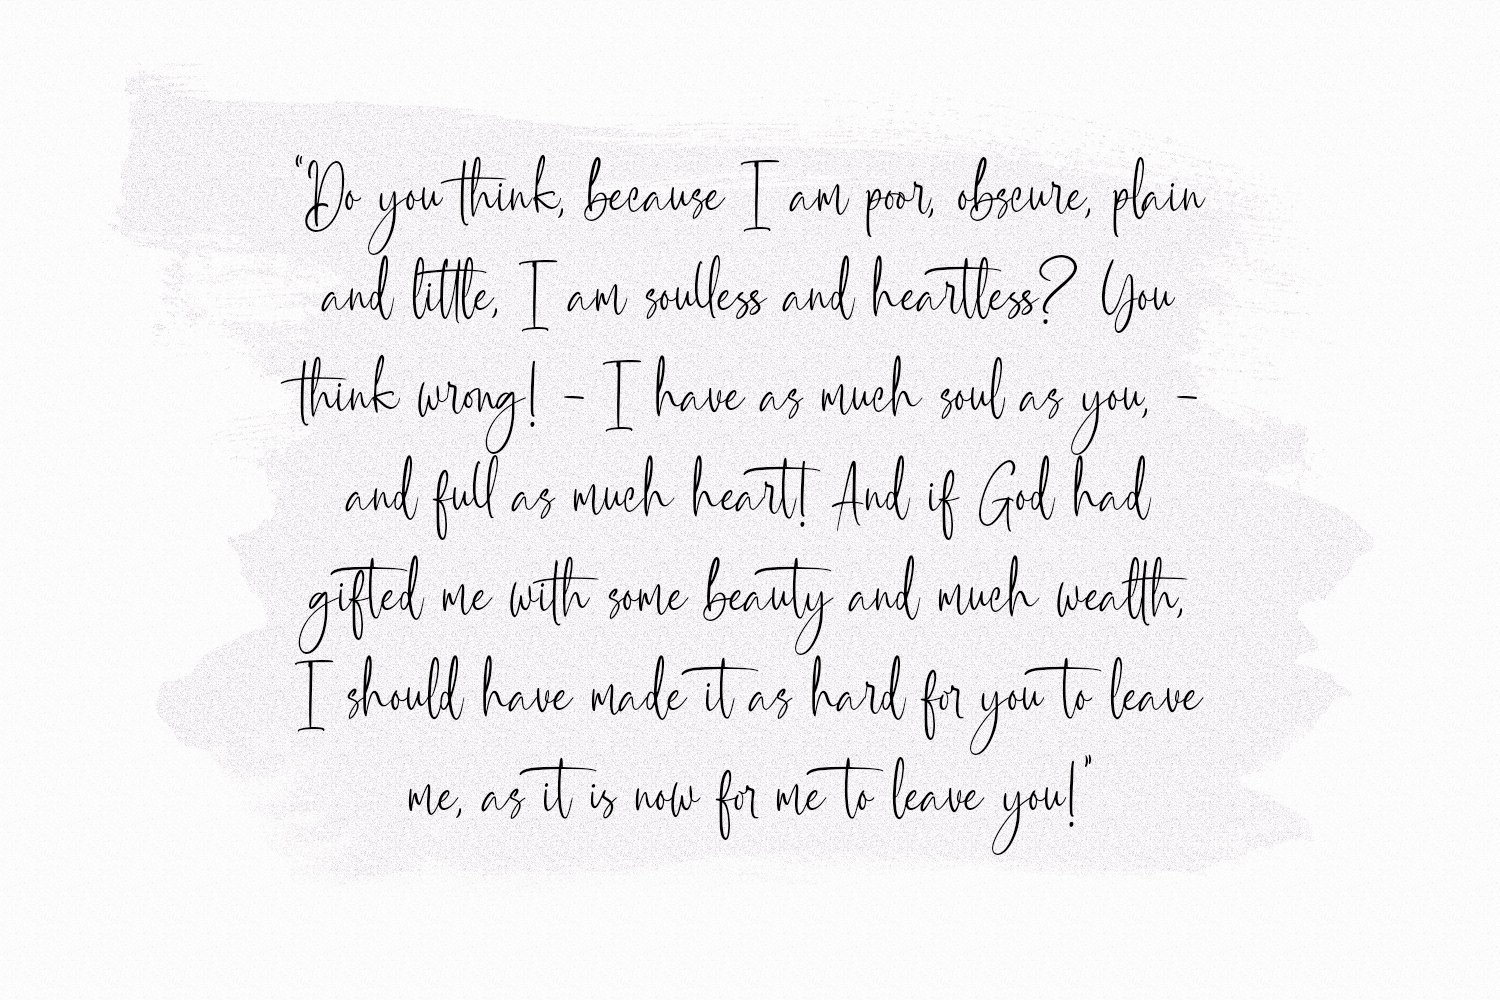 “Do you think, because I am poor, obscure, plain
and little, I am soulless and heartless? You
think wrong! - I have as much soul as you, -
and full as much heart! And if God had
gifted me with some beauty and much wealth,
I should have made it as hard for you to leave
me, as it is now for me to leave you!”